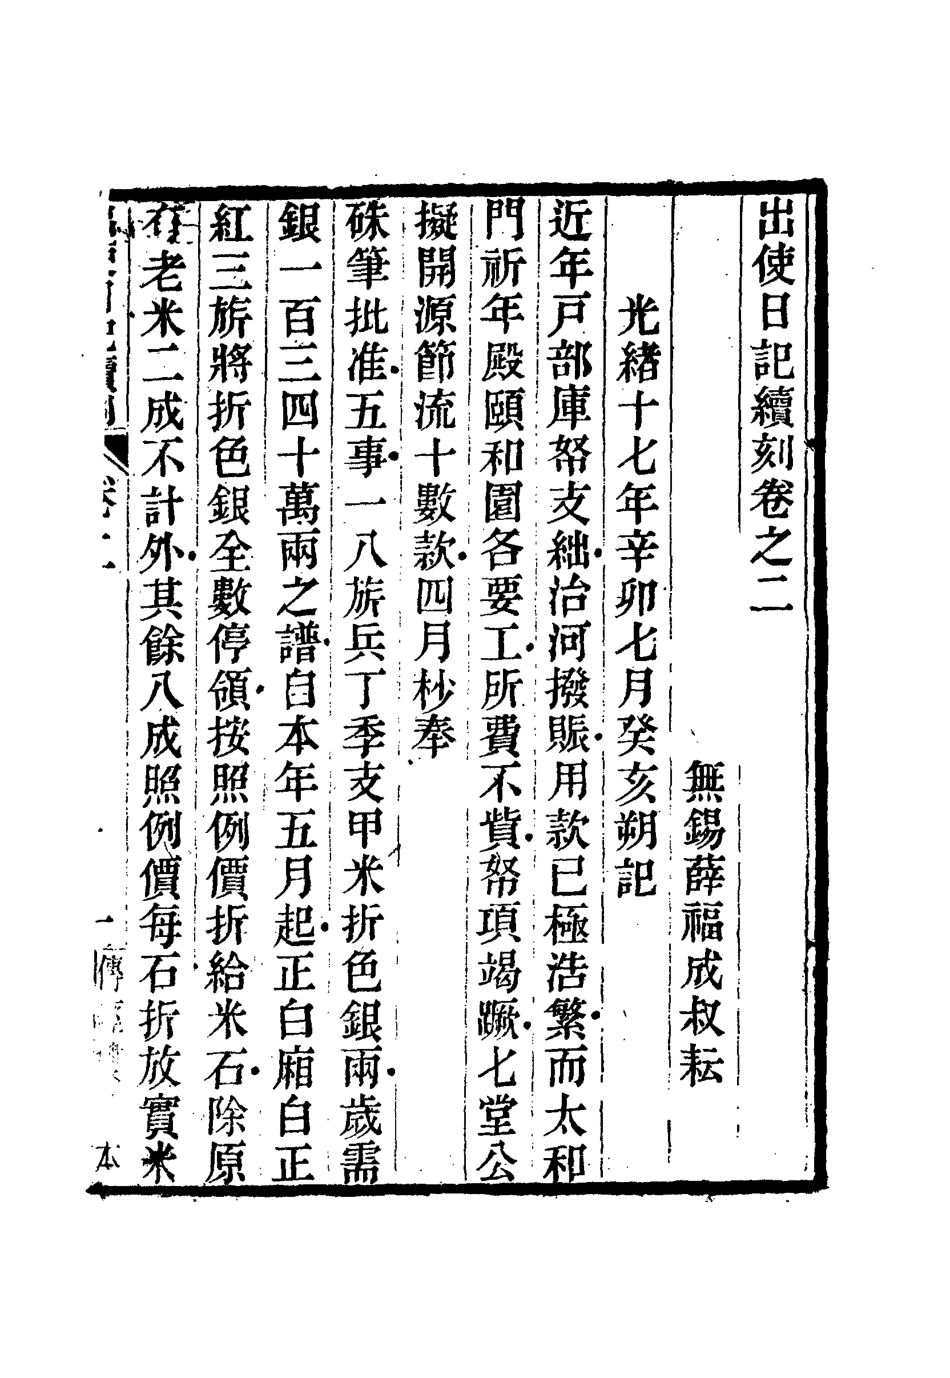 出使日記續刻卷之二
無錫薛福成叔耘
光緒十七年辛卯七月癸亥朔記
近年戸部庫帑支絀治河撥賑用款已極浩繁而太和
門祈年殿頤和園各要工所費不貲帑項竭蹶七堂公
擬開源節流十數款四月杪奉
硃筆批准五事一八旂兵丁季支甲米折色銀兩歲需
銀一百三四十萬兩之譜自本年五月起正白廂白正
紅三旂將折色銀全數停領按照例價折給米石除原
有老米二成不計外其餘八成照例價每石折放實米
卷二
一
傳
本